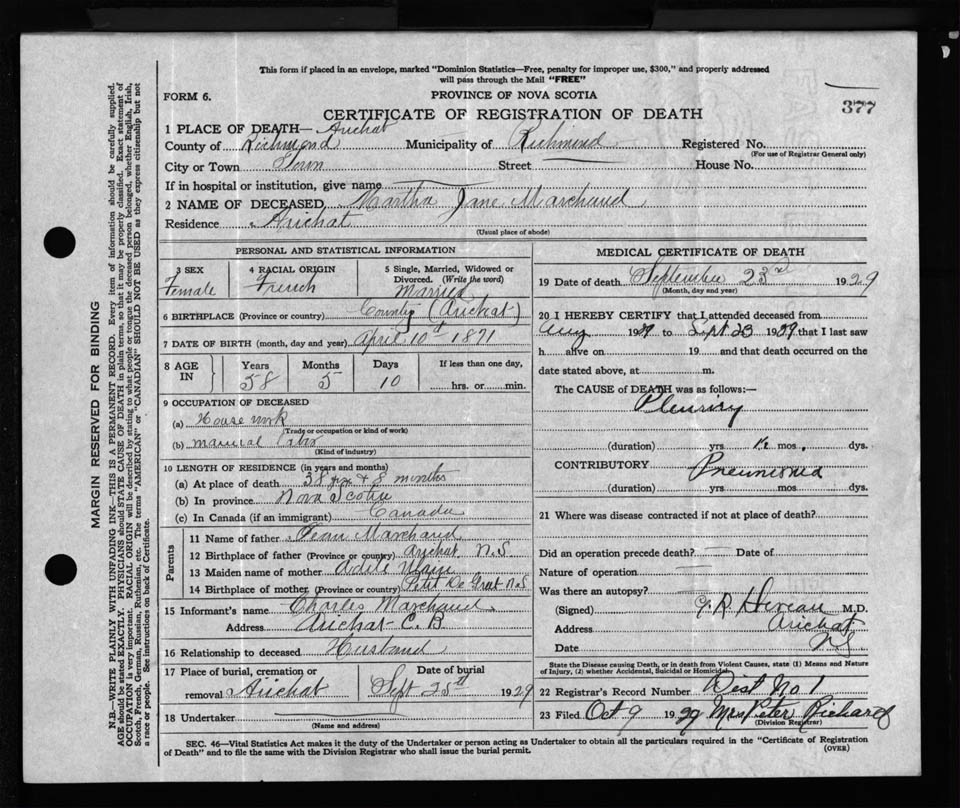 This form if placed in an envelope, marked "Dominion Statistics—Free, penalty for improper use, $300," and properly addressed
will pass through the Mail "FREE"
FORM 6.
PROVINCE OF NOVA SCOTIA
377
CERTIFICATE OF REGISTRATION OF DEATH
1 PLACE OF DEATH— Arichat
County of Richmond Municipality of Richmond Registered No.
(For use of Registrar General only)
City or Town Town Street House No.
If in hospital or institution, give name
2 NAME OF DECEASED Martha Jane Marchand
Residence Arichat
(Usual place of abode)
PERSONAL AND STATISTICAL INFORMATION
3 SEX 4 RACIAL ORIGIN 5 Single, Married, Widowed or
Divorced. (Write the word)
Female French Married
6 BIRTHPLACE (Province or country) County (Arichat)
7 DATE OF BIRTH (month, day and year) April 10th 1871
8 AGE IN Years Months Days If less than one day,
58 5 10 hrs. or min.
9 OCCUPATION OF DECEASED
(a) House work
(Trade or occupation or kind of work)
(b) manual labor
(Kind of industry)
10 LENGTH OF RESIDENCE (in years and months)
(a) At place of death 58 yrs & 8 months
(b) In province Nova Scotia
(c) In Canada (if an immigrant) Canada
Parents
11 Name of father Jean Marchand
12 Birthplace of father (Province or country) Arichat N.S.
13 Maiden name of mother Adele
14 Birthplace of mother (Province or country) Petit De Grat N.S
15 Informant's name Charles Marchand
Address Arichat C.B
16 Relationship to deceased Husband
17 Place of burial, cremation or Date of burial
removal Arichat Sept 25th 1929
18 Undertaker
(Name and address)
MEDICAL CERTIFICATE OF DEATH
19 Date of death September 23rd 1929
(Month, day and year)
20 I HEREBY CERTIFY that I attended deceased from
Aug 1929 to Sept 23 1929 that I last saw
h alive on 19 and that death occurred on the
date stated above, at m.
The CAUSE OF DEATH was as follows:—
Pleurisy
(duration) yrs mos. dys.
CONTRIBUTORY Pneumonia
(duration) yrs. mos. dys.
21 Where was disease contracted if not at place of death?
Did an operation precede death? — Date of
Nature of operation —
Was there an autopsy?
(Signed) R M.D.
Address Arichat
Date N.S.
State the Disease causing Death, or in death from Violent Causes, state (1) Means and Nature
of Injury, (2) whether Accidental, Suicidal or Homicidal.
22 Registrar's Record Number Dist No 1
23 Filed Oct 9 1929 Mrs Peter Richard
(Division Registrar)
SEC. 46—Vital Statistics Act makes it the duty of the Undertaker or person acting as Undertaker to obtain all the particulars required in the "Certificate of Registration
of Death" and to file the same with the Division Registrar who shall issue the burial permit. (OVER)
MARGIN RESERVED FOR BINDING
N.B.—WRITE PLAINLY WITH UNFADING INK—THIS IS A PERMANENT RECORD. Every item of information should be carefully supplied.
AGE should be stated EXACTLY. PHYSICIANS should STATE CAUSE OF DEATH in plain terms, so that it may be properly classified. Exact statement of
OCCUPATION is very important. RACIAL ORIGIN will be described by stating to what people or tongue the deceased person belonged, whether English, Irish,
Scotch, French, German, Russian, Ruthenian, etc. The terms "AMERICAN" or "CANADIAN" SHOULD NOT BE USED as they express citizenship but not
a race or people. See instructions on back of Certificate.